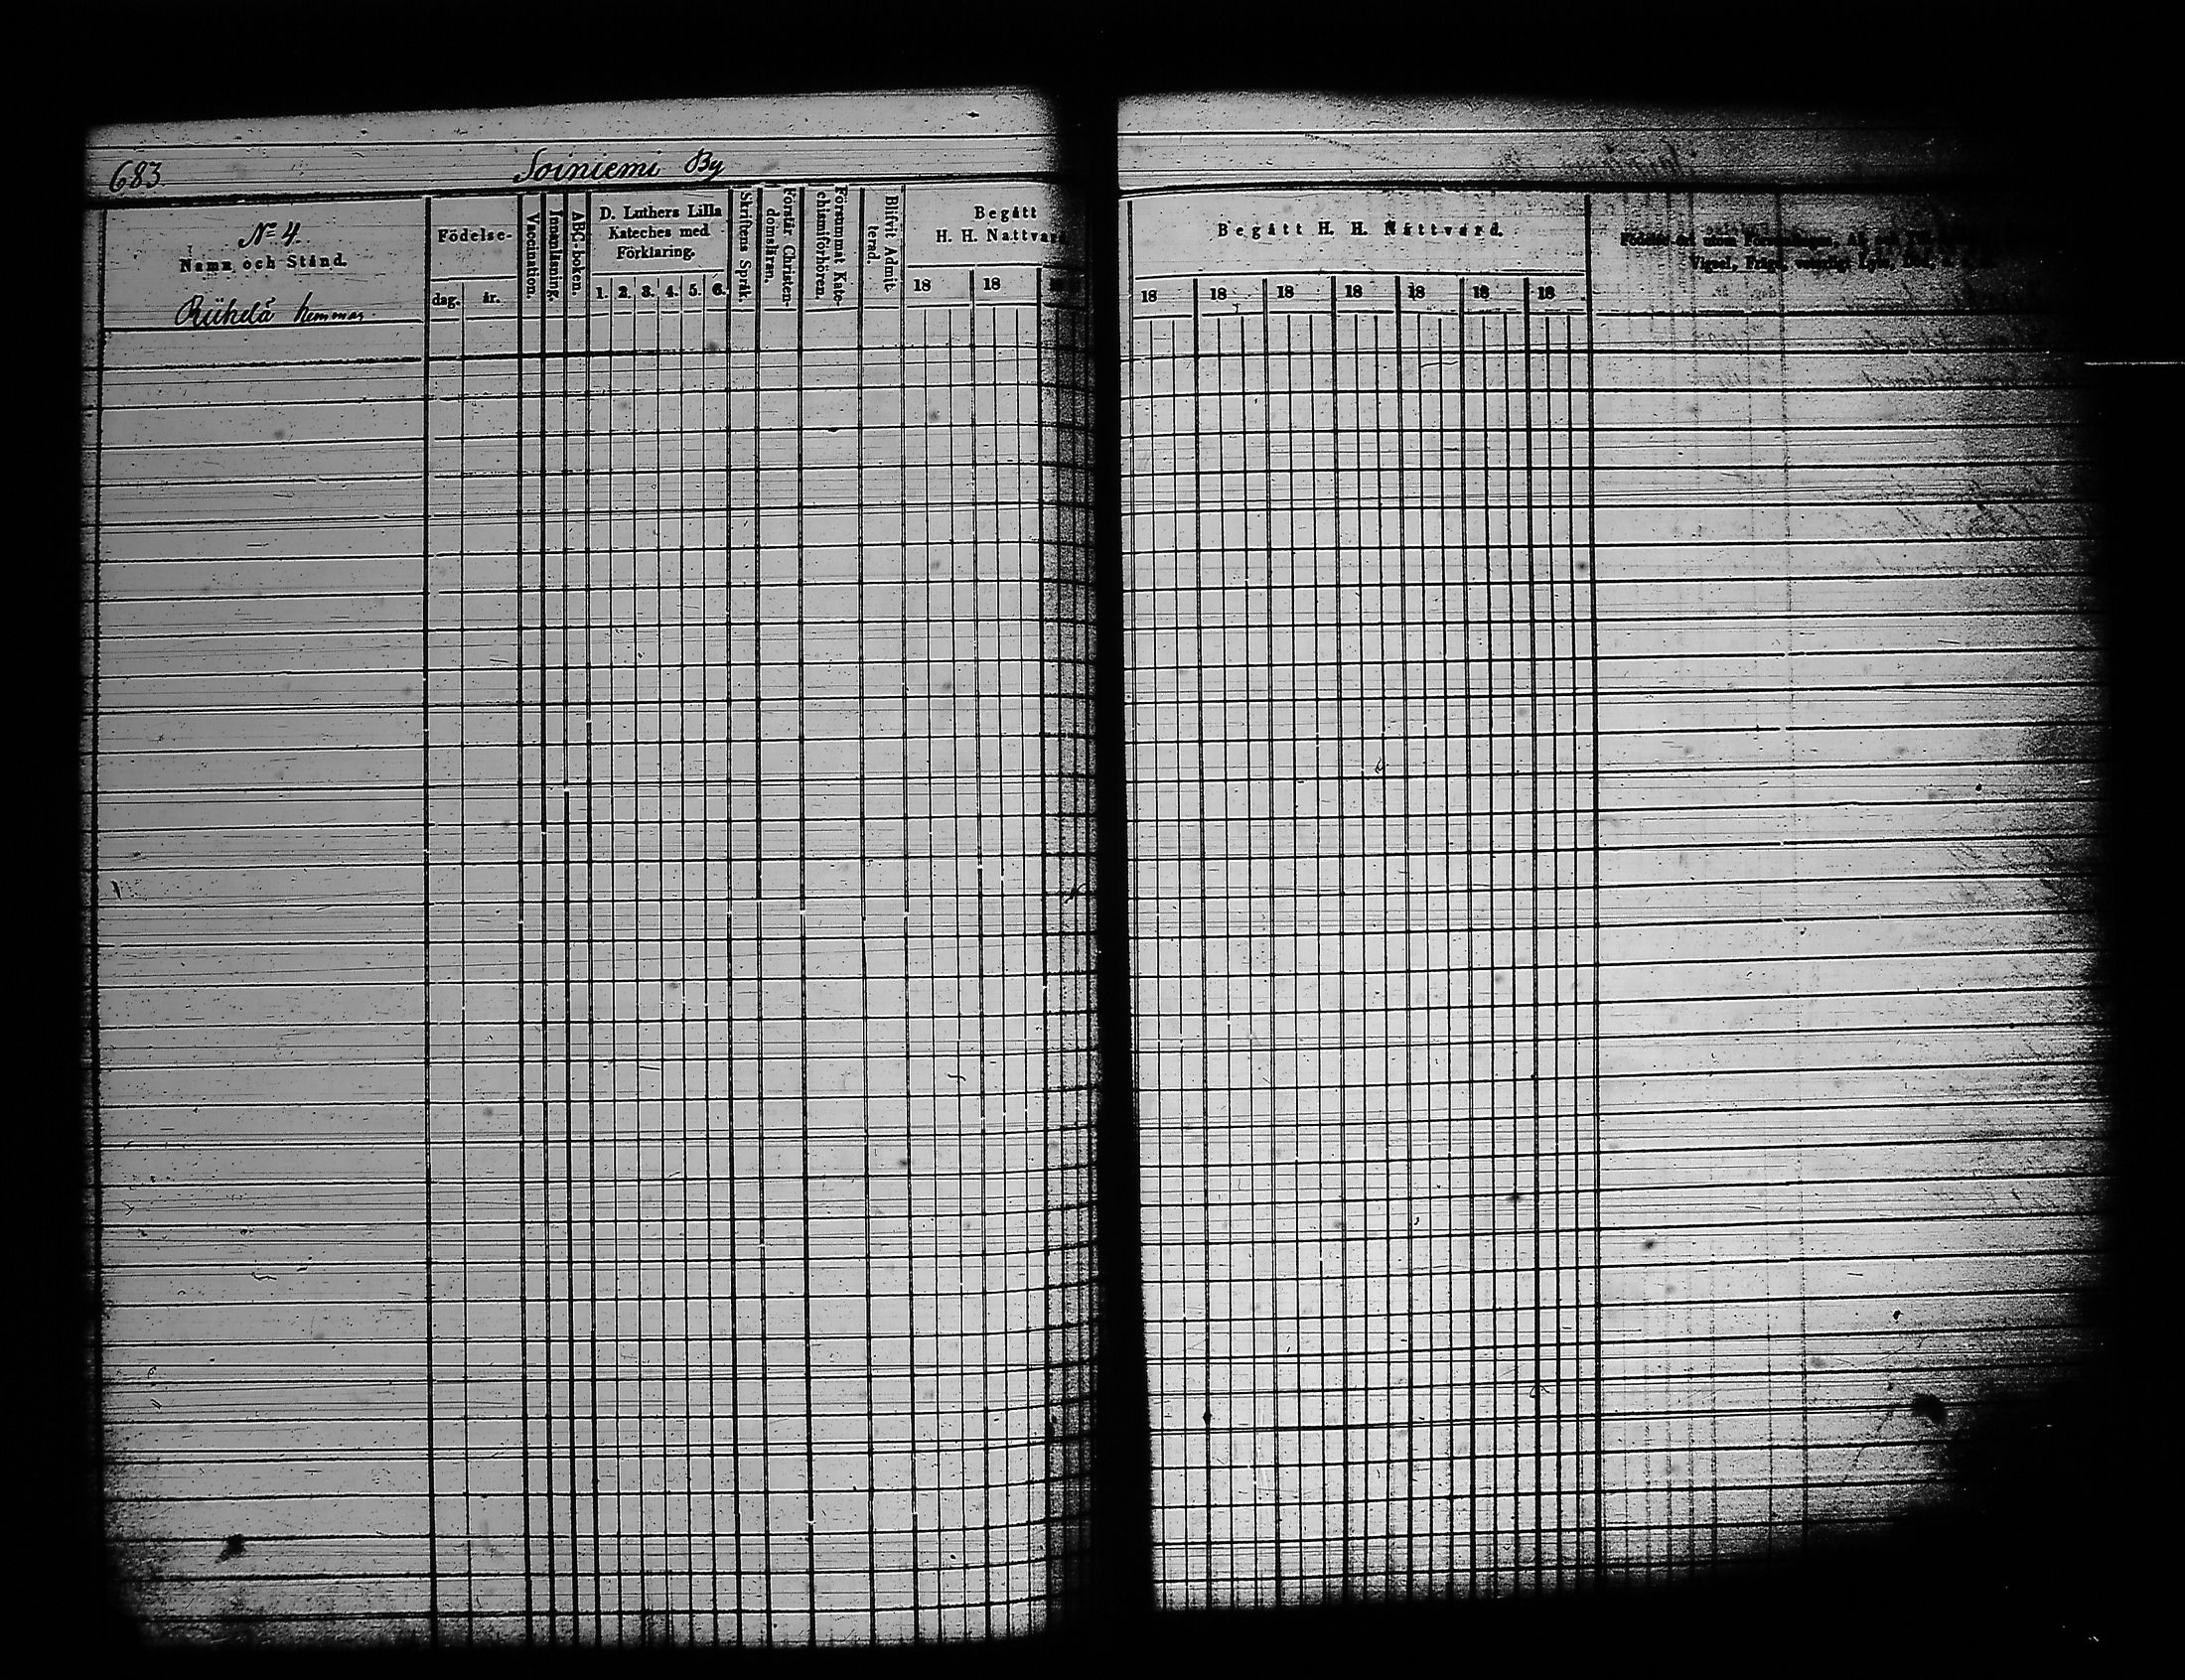 683.
Soiniemi By
No 4.
Namn och Stånd.
Riihelä hemman.
Födelse-
dag.
år.
Vaccination.
Innanläsning.
ABC-boken.
D. Luthers Lilla
Kateches med
Förklaring.
1. 2. 3. 4. 5. 6.
Skriftens Språk.
Förstår Christen-
domsläran.
Försummat Kate-
chismiförhören.
Blifvit Admit-
terad.
Begått
H. H. Nattvard
18 18
Begått H. H. Nattvard.
18 18 18 18 18 18 18
Födelse-ort utom Församlingen, Af
Vigsel, Frägd,